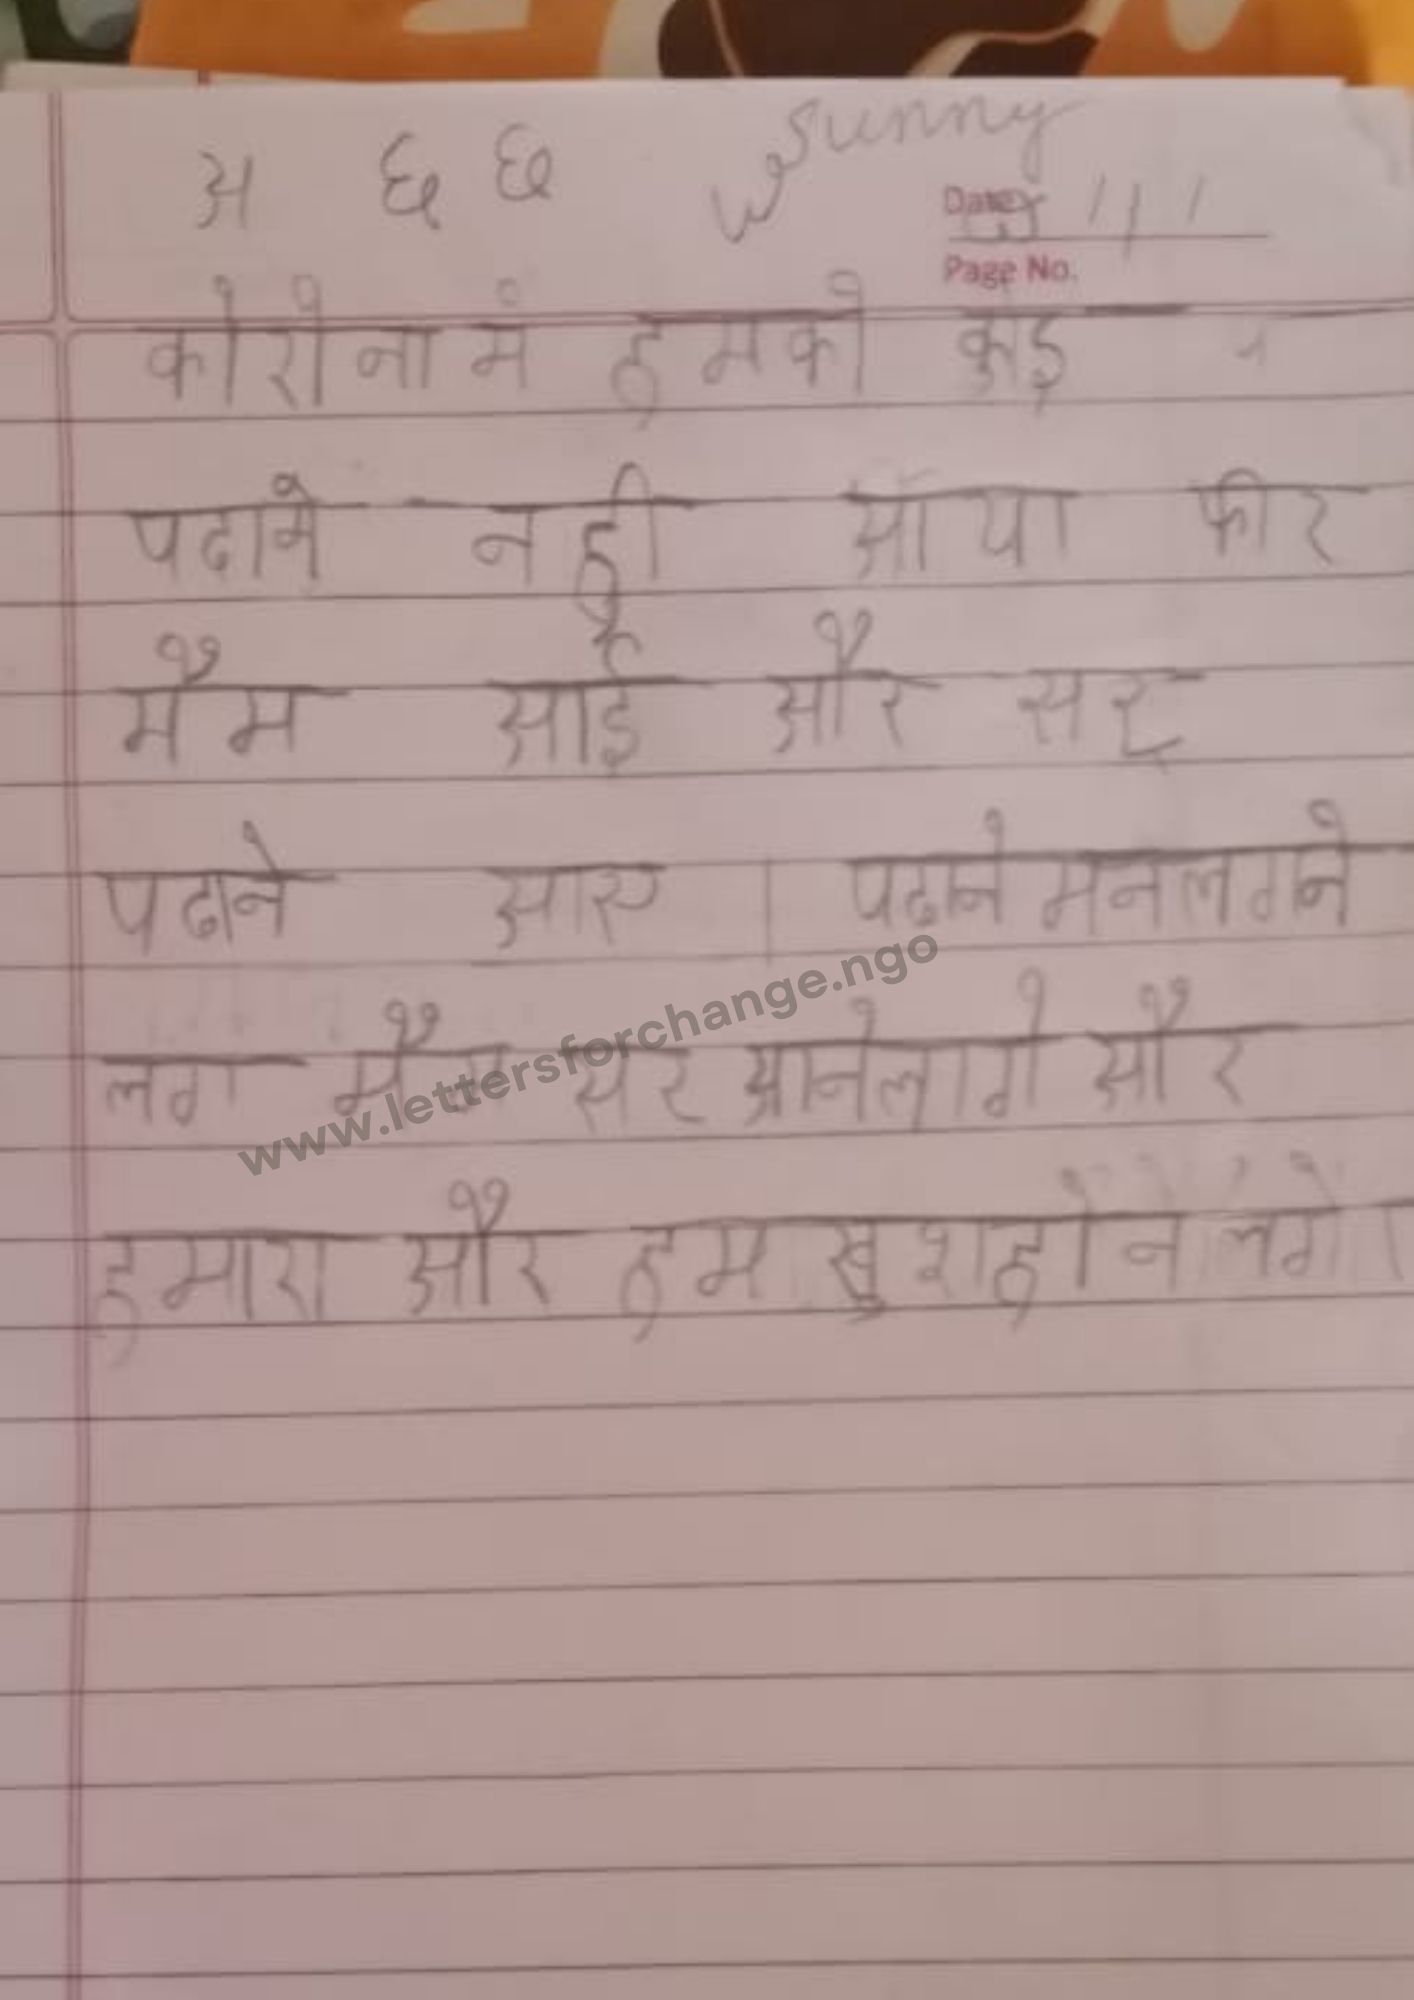 Sunny
अ छ छ
Date
Page No.
कोरोना मे हमको कोइ
पढाने नही आँया फीर
मैम आई और सर
पढाने आए । पढाने मन लगने
लगा मैम सर आने लागे और
हमारा और हम खुश होने लगे ।
www.lettersforchange.ngo